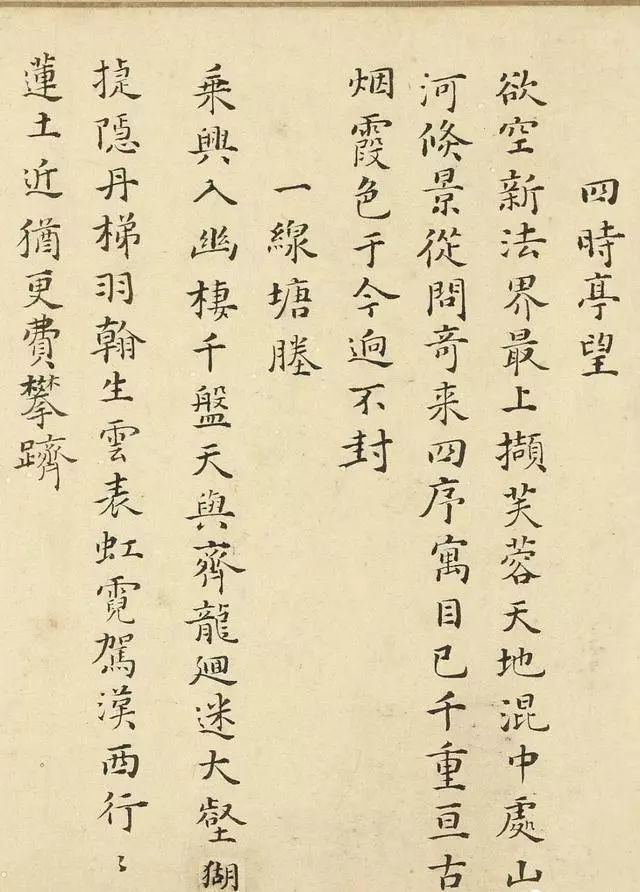 四時亭望
欲空新法界最上擷芙蓉天地混中處山
河倏景從問奇来四序寓目已千重亘古
烟霞色于今逈不封
一線塘塍
乗興入幽棲千盤天與齊龍廻迷大壑猢
捷隱丹梯羽翰生雲表虹霓駕漢西行〻
蓮土近猶更費攀躋